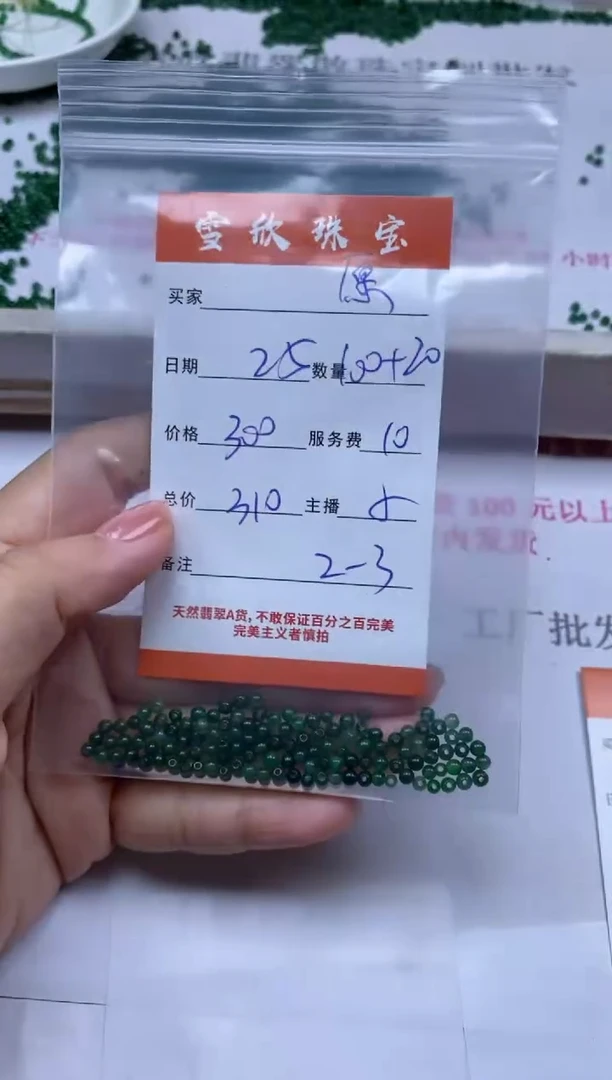 雪欣珠宝
买家
日期 215 数量 100+20
价格 300 服务费 10
总价 310 主播
备注 2-3
天然翡翠A货,不敢保证百分之百完美
完美主义者慎拍
小时
100 元以上
工厂批发